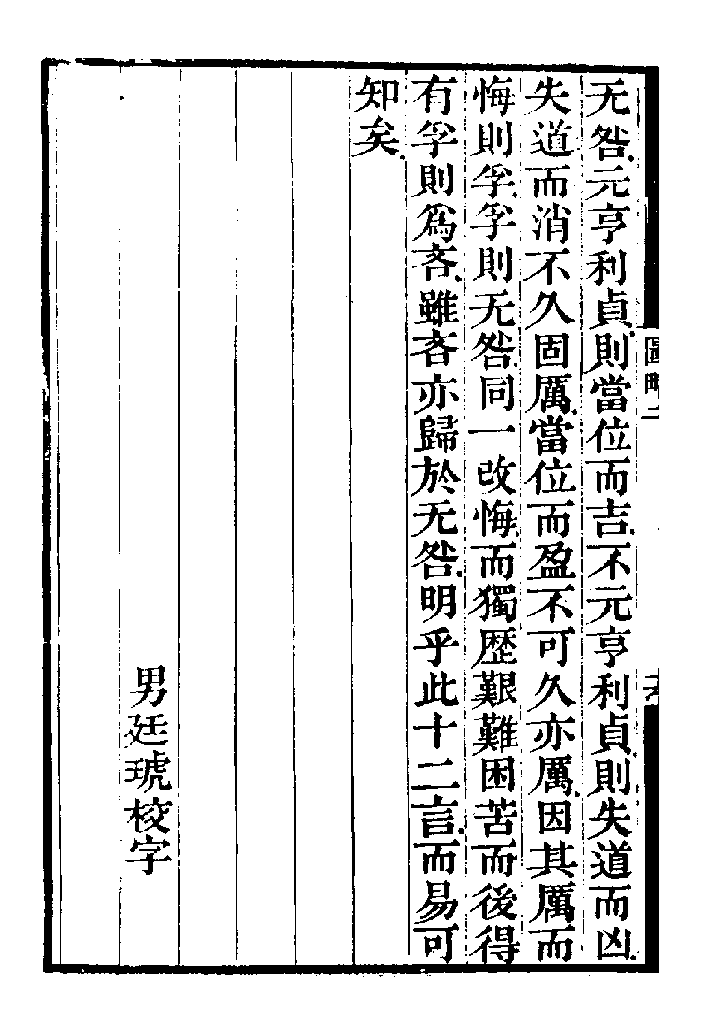 无咎元亨利貞則當位而吉不元亨利貞則失道而凶
失道而消不久固厲當位而盈不可久亦厲因其厲而
悔則孚孚則无咎同一改悔而獨歴艱難困苦而後得
有孚則爲吝雖吝亦歸於无咎明乎此十二言而易可
知矣
男廷琥校字
圖略二